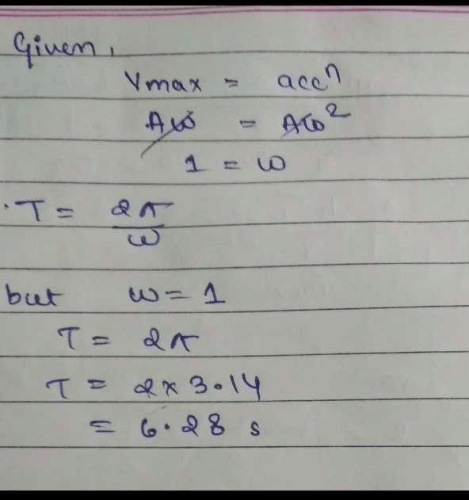 Given,
Vmax = accⁿ
Aω = Aω²
1 = ω
. T = 2π/ω
but ω = 1
T = 2π
T = 2 x 3.14
= 6.28 s